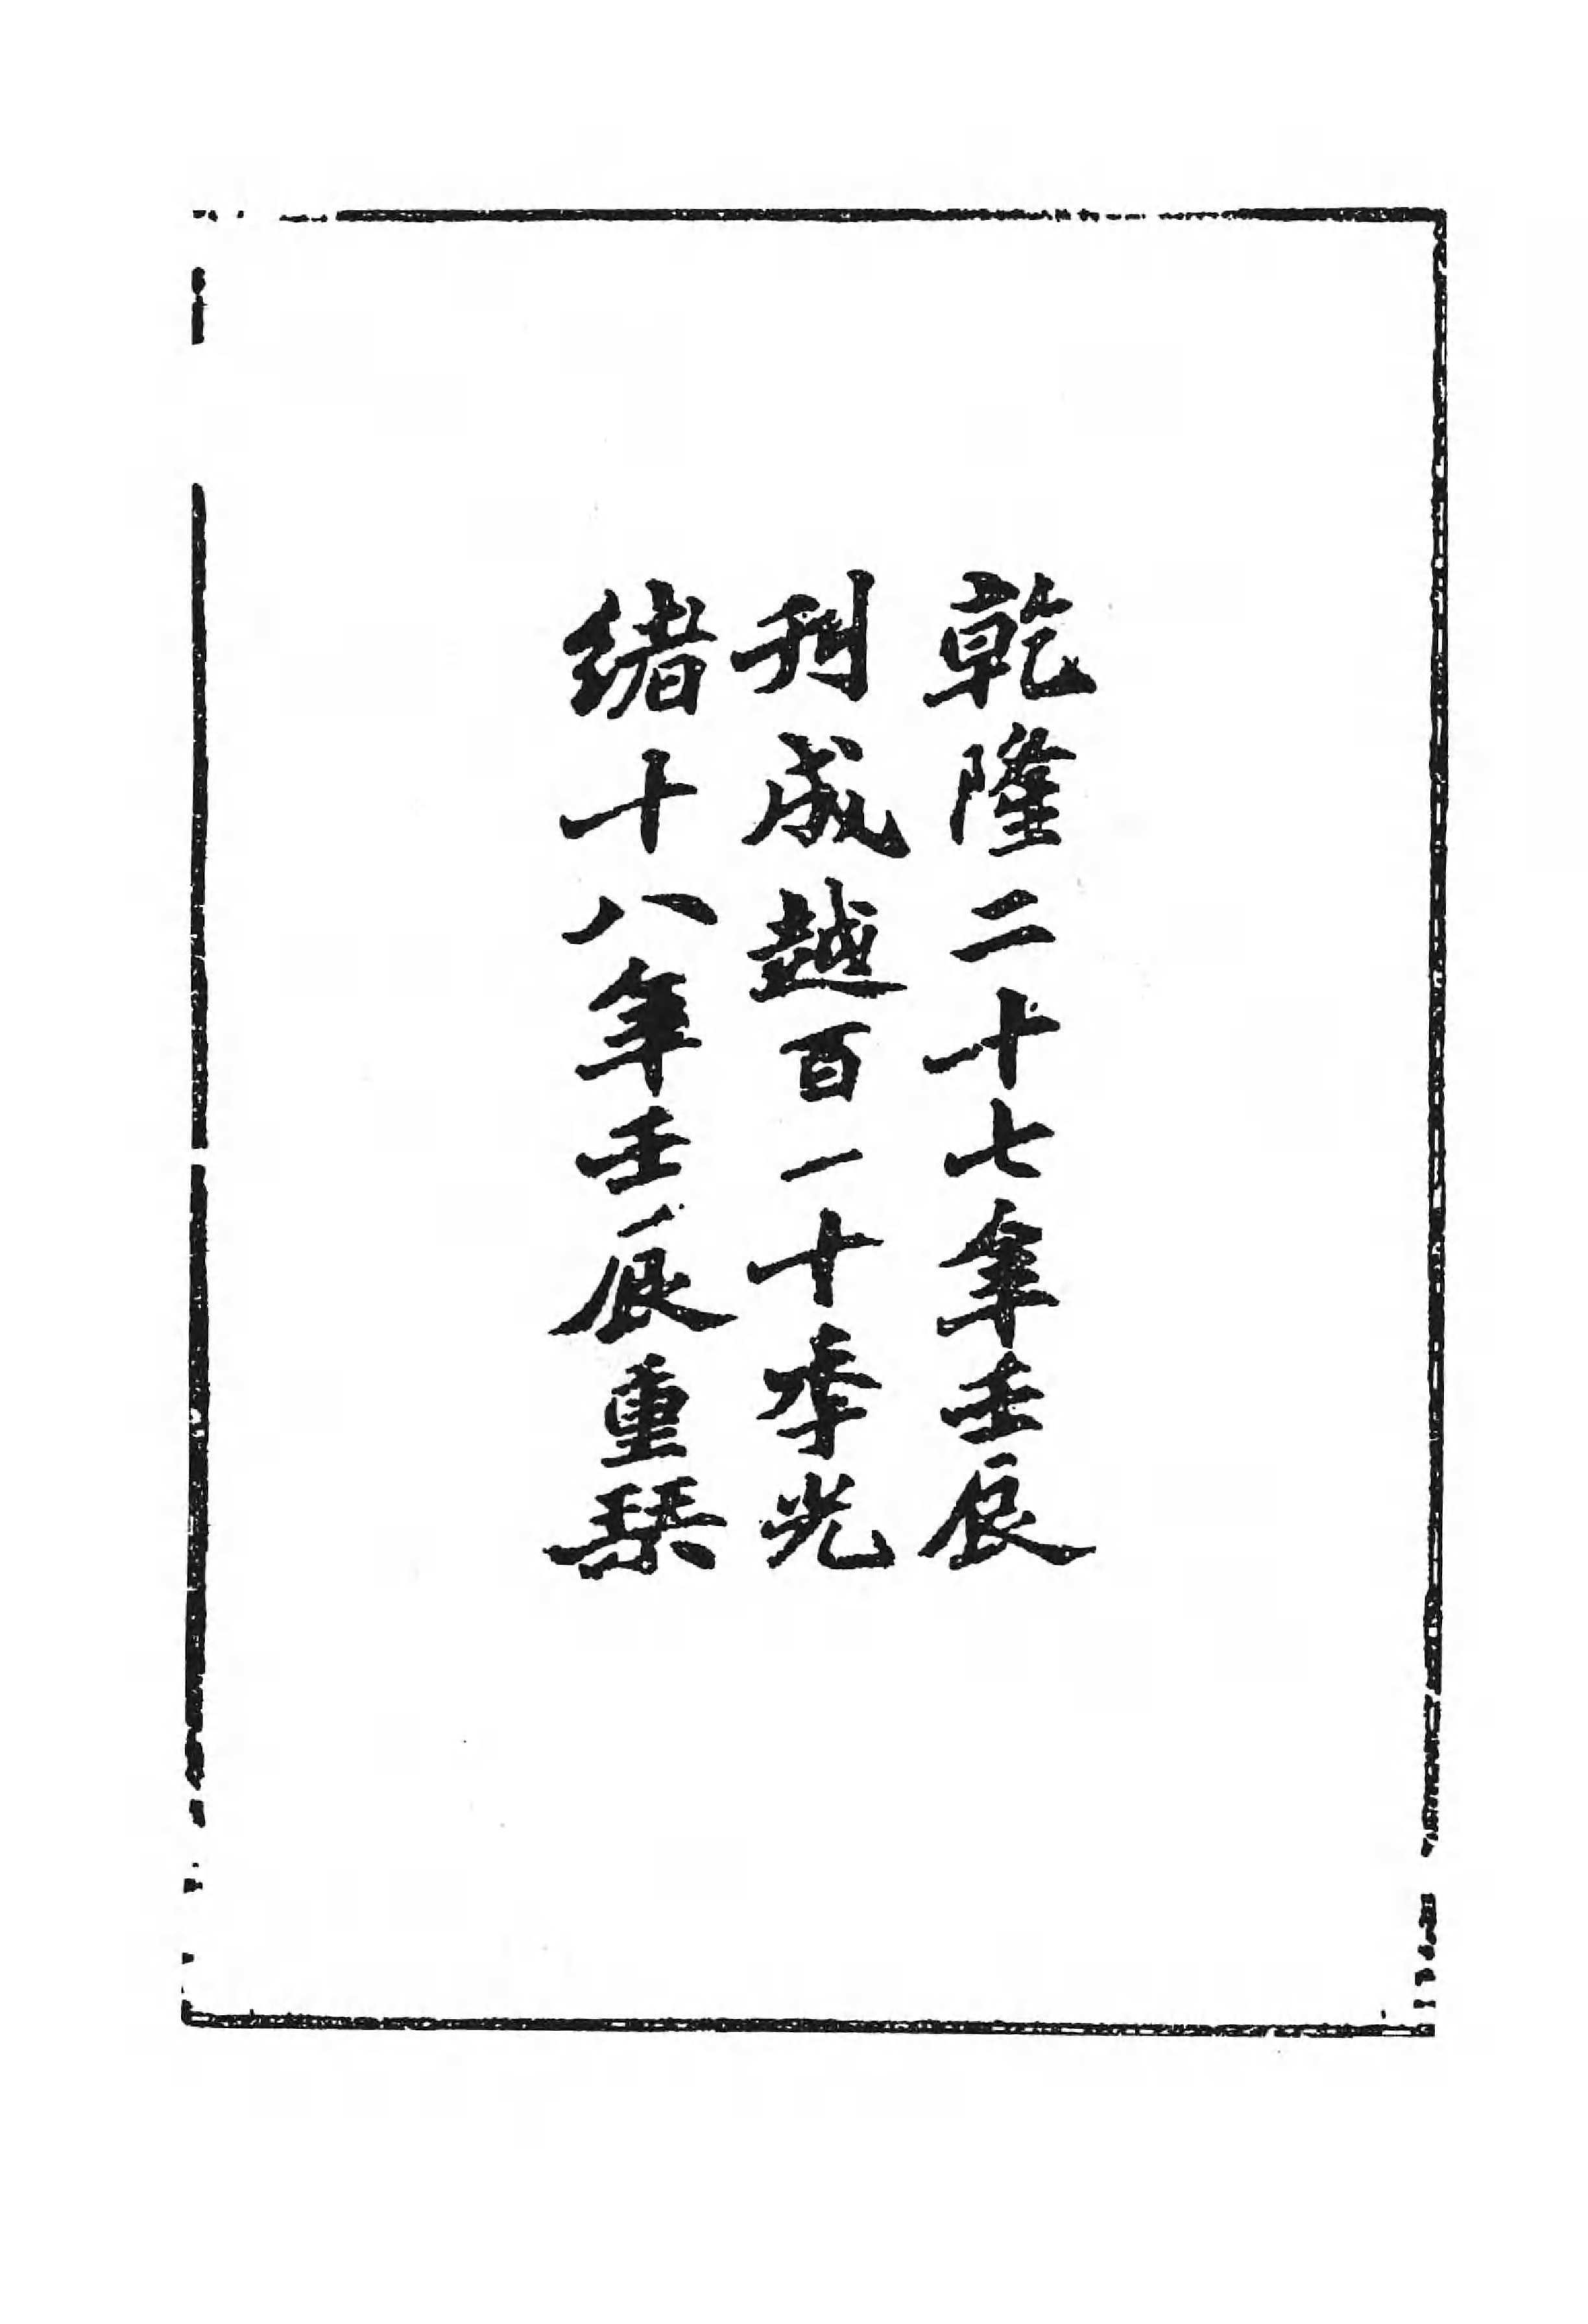 乾隆二十七年壬辰
刊成越百一十季光
緒十八年壬辰重栞